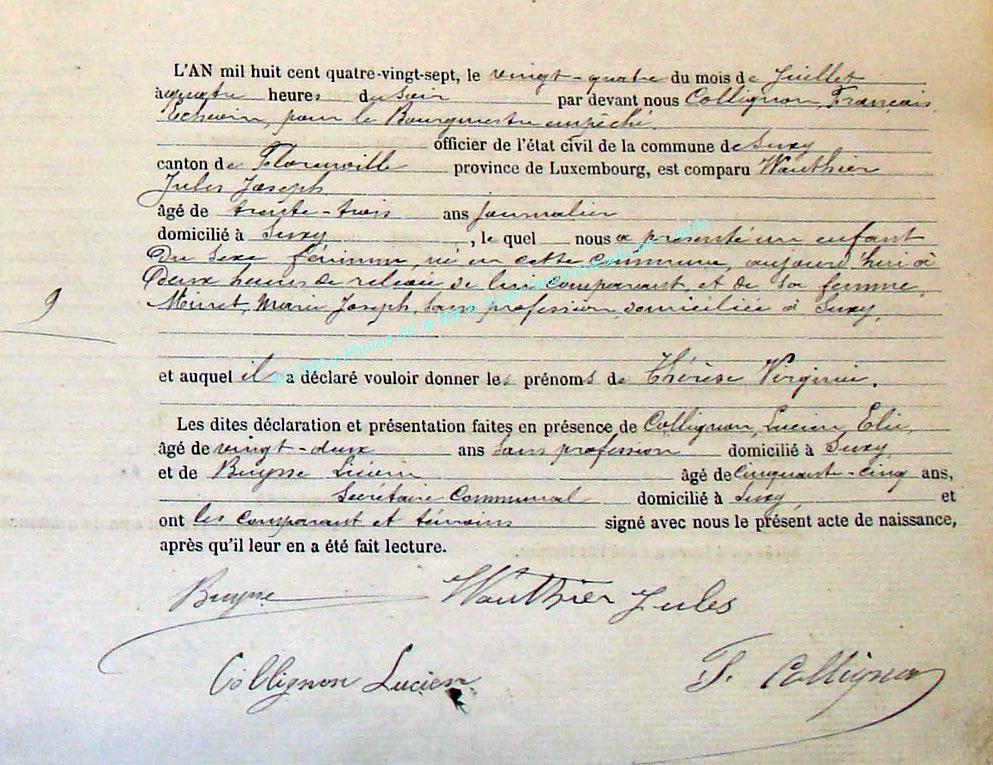 L'AN mil huit cent quatre-vingt-sept, le vingt-quatre du mois de Juillet
à quatre heures du soir par devant nous Collignon, François,
Echevin, pour le Bourgmestre empêché,
officier de l'état civil de la commune de Suxy
canton de Florenville province de Luxembourg, est comparu Wauthier
Jules Joseph
âgé de trente-trois ans Journalier
domicilié à Suxy, le quel nous a présenté un enfant
du sexe féminin, né en cette commune, aujourd'hui à
deux heures de relevée de lui comparant, et de sa femme,
Muret, Marie Joseph, sans profession, domiciliée à Suxy,
9
et auquel il a déclaré vouloir donner les prénoms de Thérèse Virginie.
Les dites déclaration et présentation faites en présence de Collignon, Lucien, Elie,
âgé de vingt-deux ans sans profession domicilié à Suxy,
et de Buysse Lucien âgé de cinquante-cinq ans,
Secrétaire Communal domicilié à Suxy et
ont les comparant et témoins signé avec nous le présent acte de naissance,
après qu'il leur en a été fait lecture.
Buysse Wauthier Jules
Collignon Lucien F. Collignon